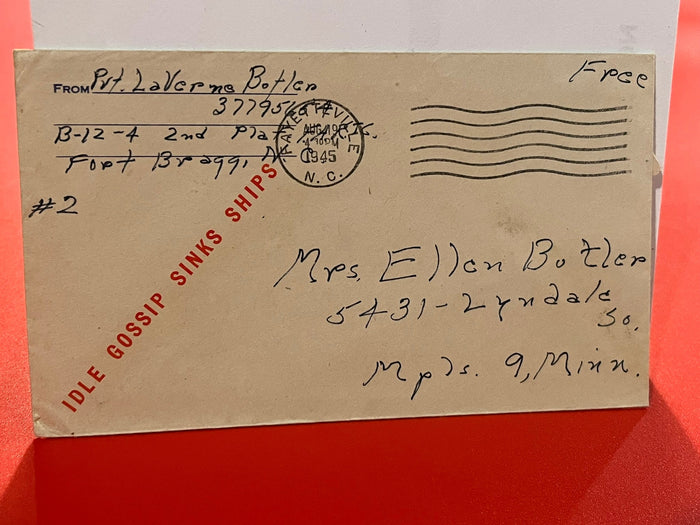 FROM Pvt. LaVerne Butler
B-12-4 2nd Plat.
Fort Bragg, N.C.
FAYETTEVILLE
AUG 19
1945
N. C.
Free
#2
IDLE GOSSIP SINKS SHIPS
Mrs. Ellen Butler
5431-Lyndale
So.
Mpls. 9, Minn.